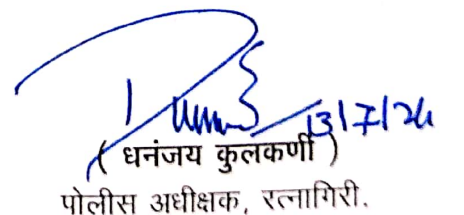 13/7/24
( धनंजय कुलकर्णी )
पोलीस अधीक्षक, रत्नागिरी.